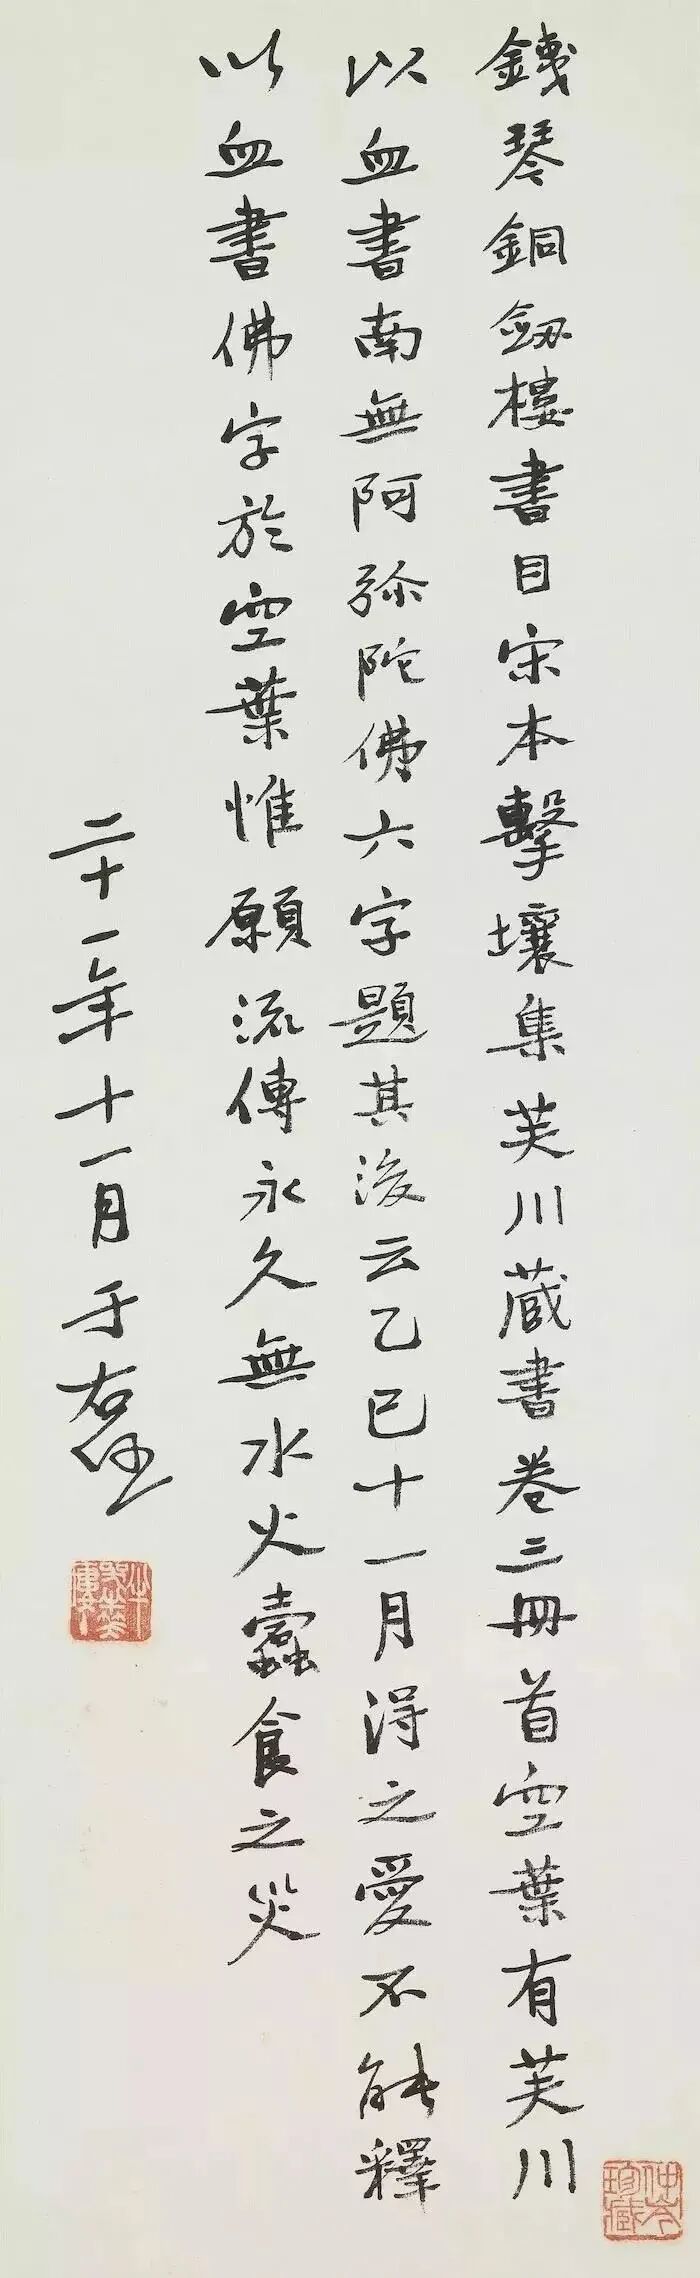 銕琴銅劒樓書目宋本擊壤集芙川藏書卷三冊首空葉有芙川
以血書南無阿弥陀佛六字題其後云乙巳十一月得之愛不能釋
以血書佛字於空葉惟願流傳永久無水火蠹食之災
二十一年十一月于右任
仲岑珍藏